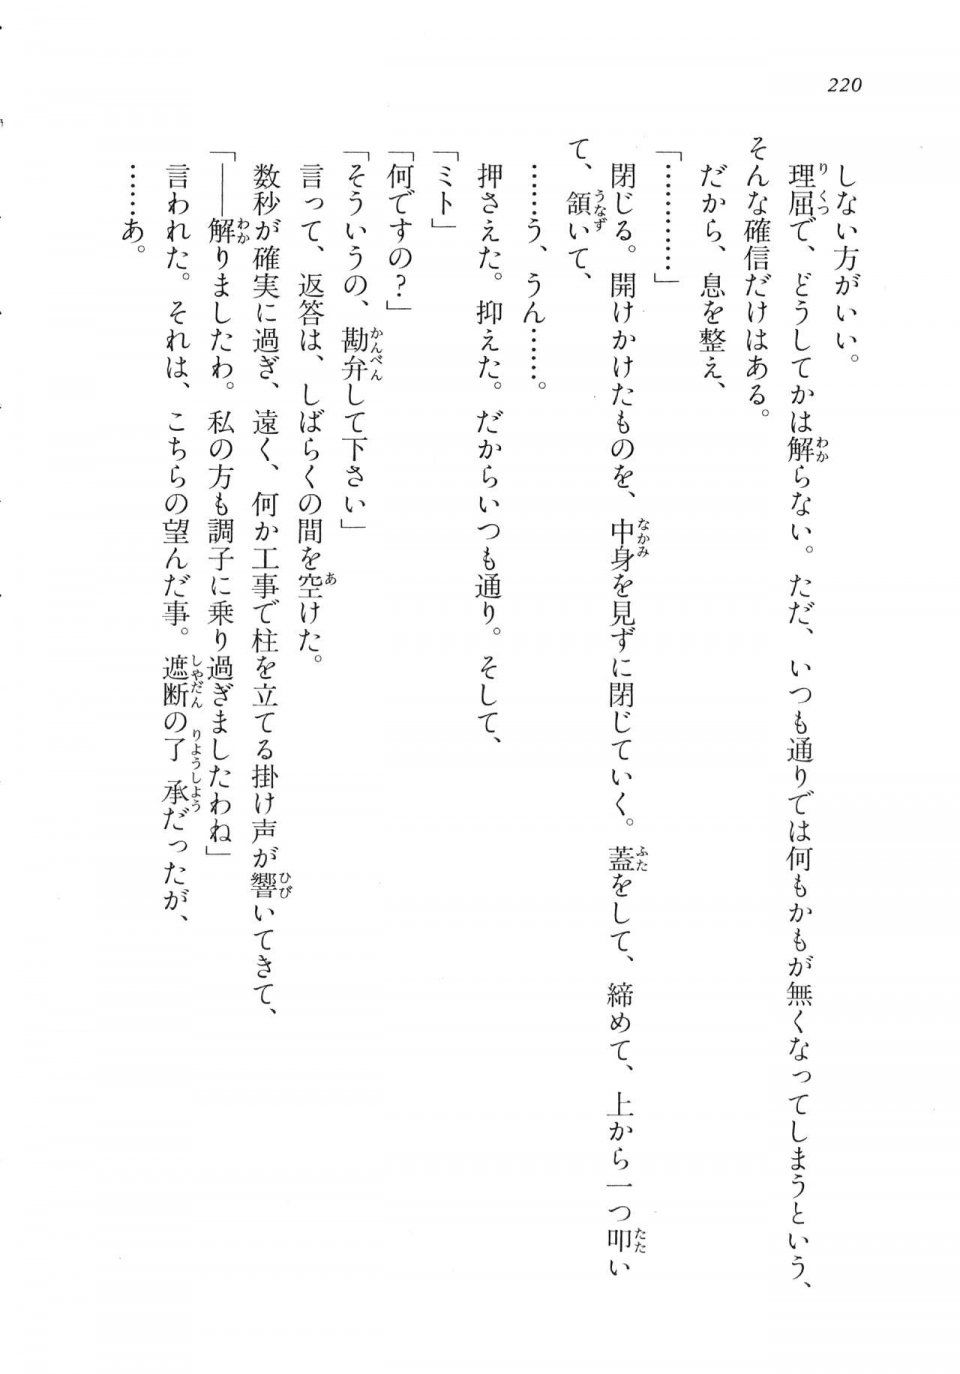 220
しない方がいい。
理屈で、どうしてかは解らない。ただ、いつも通りでは何もかもが無くなってしまうという、
そんな確信だけはある。
だから、息を整え、
「…………」
閉じる。開けかけたものを、中身を見ずに閉じていく。蓋をして、締めて、上から一つ叩い
て、頷いて、
……う、うん……。
押さえた。抑えた。だからいつも通り。そして、
「ミト」
「何ですの？」
「そういうの、勘弁して下さい」
言って、返答は、しばらくの間を空けた。
数秒が確実に過ぎ、遠く、何か工事で柱を立てる掛け声が響いてきて、
「――解りましたわ。私の方も調子に乗り過ぎましたわね」
言われた。それは、こちらの望んだ事。遮断の了承だったが、
……あ。